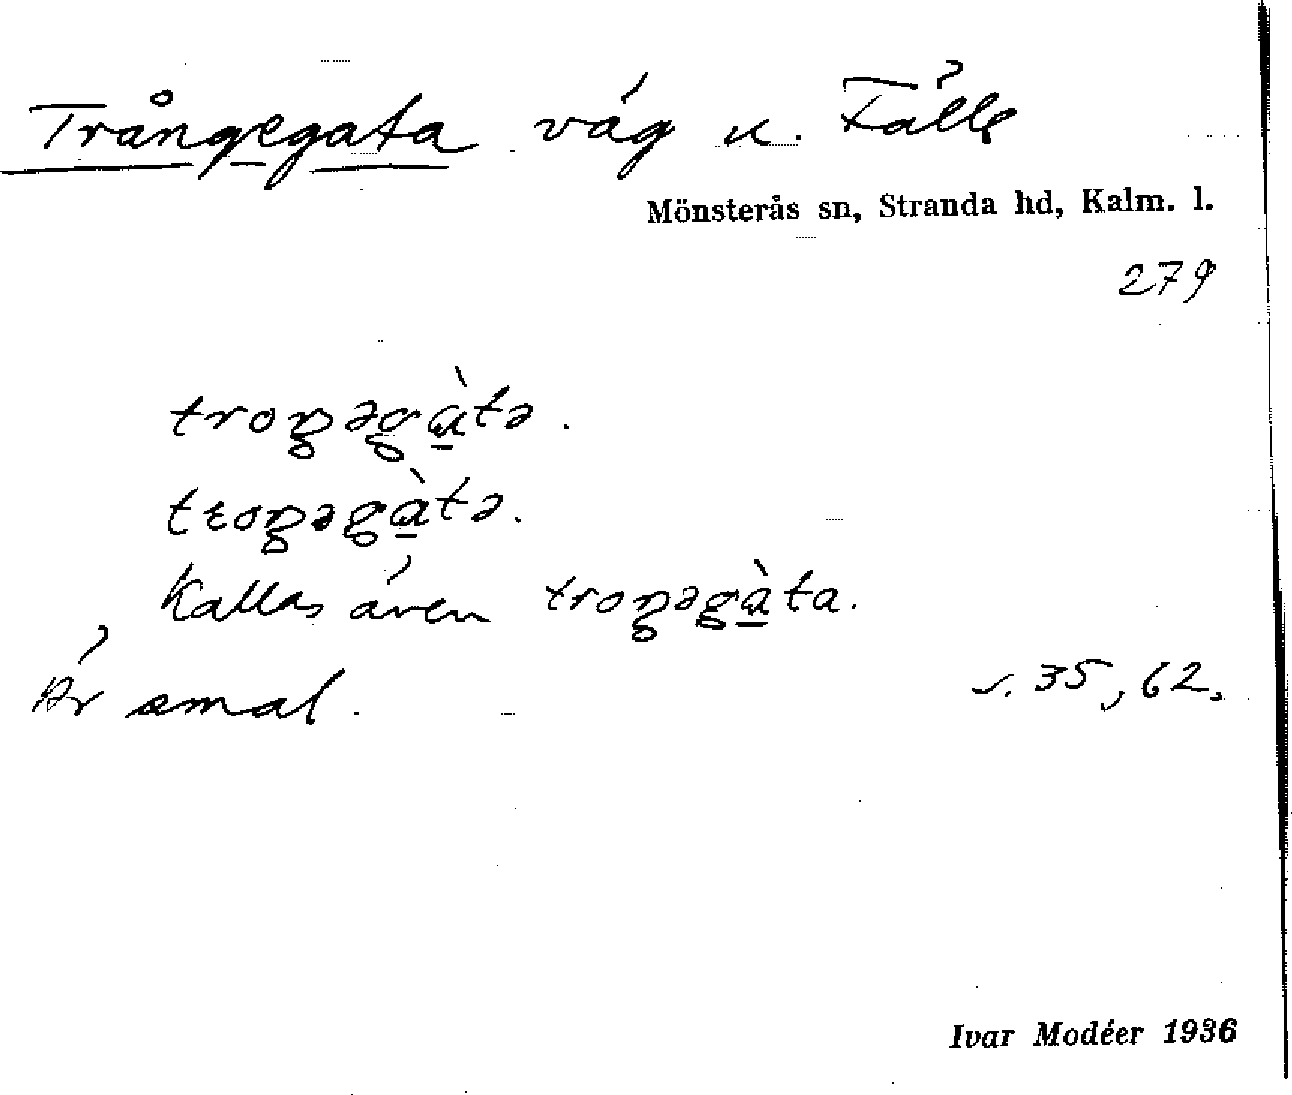 Trångegata väg u. Fälle
Mönsterås sn, Stranda hd, Kalm. l.
279
troŋəgɑ̀tə.
troŋəgɑ̀tə.
Kallas även troŋəgɑ̀ta.
Är smal. s. 35, 62,
Ivar Modéer 1936